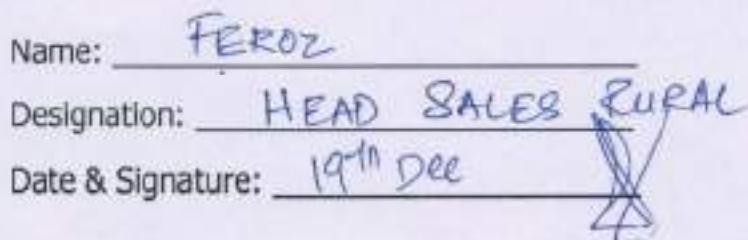 Name: FEROZ
Designation: HEAD SALES RURAL
Date & Signature: 19th Dec